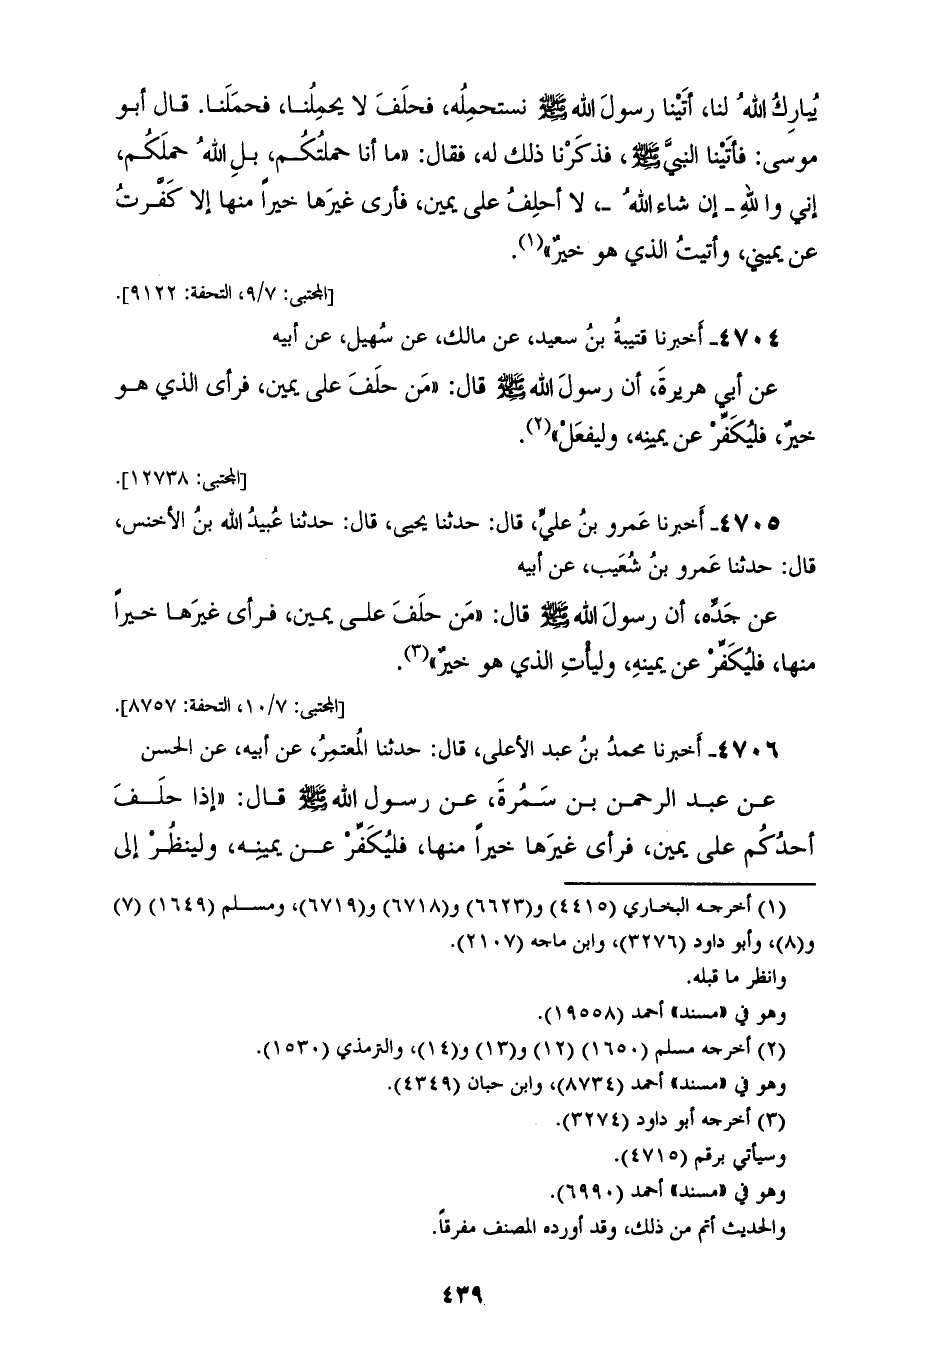 يُبارِكُ اللهُ لنا، أتَيْنا رسولَ الله ﷺ نستحمِلُه، فحلَفَ لا يحمِلُنا، فحمَلَنا. قال أبو
موسى: فأتَيْنا النبيَّ ﷺ، فذكَرْنا ذلك له، فقال: «ما أنا حملتُكُم، بلِ اللهُ حملَكُم،
إني واللهِ ـ إن شاء اللهُ ـ، لا أحلِفُ على يمين، فأرى غيرَها خيراً منها إلا كَفَّرتُ
عن يميني، وأتيتُ الذي هو خيرٌ»(١).
[المجتبى: ٩/٧، التحفة: ٩١٢٢].
٤٧٠٤ـ أَخبرنا قتيبةُ بنُ سعيد، عن مالك، عن سُهيل، عن أبيه
عن أبي هريرةَ، أن رسولَ الله ﷺ قال: «مَن حلَفَ على يمين، فرأى الذي هو
خيرٌ، فليُكَفِّرْ عن يمينِه، وليفعَلْ»(٢).
[المجتبى: ١٢٧٣٨].
٤٧٠٥ـ أَخبرنا عَمرو بنُ عليٍّ، قال: حدثنا يحيى، قال: حدثنا عُبيدُ الله بنُ الأخنس،
قال: حدثنا عَمرو بنُ شُعَيب، عن أبيه
عن جَدِّه، أن رسولَ الله ﷺ قال: «مَن حلَفَ على يمين، فرأى غيرَها خيراً
منها، فليُكَفِّرْ عن يمينِهِ، وليأْتِ الذي هو خيرٌ»(٣).
[المجتبى: ١٠/٧، التحفة: ٨٧٥٧].
٤٧٠٦ـ أَخبرنا محمدُ بنُ عبد الأعلى، قال: حدثنا المُعتمِرُ، عن أبيه، عن الحسن
عن عبد الرحمن بن سَمُرةَ، عن رسول الله ﷺ قال: «إذا حلَفَ
أحدُكُم على يمين، فرأى غيرَها خيراً منها، فليُكَفِّرْ عن يمينِه، ولينظُرْ إلى
(١) أخرجه البخاري (٤٤١٥) و(٦٦٢٣) و(٦٧١٨) و(٦٧١٩)، ومسلم (١٦٤٩) (٧)
و(٨)، وأبو داود (٣٢٧٦)، وابن ماجه (٢١٠٧).
وانظر ما قبله.
وهو في «مسند» أحمد (١٩٥٥٨).
(٢) أخرجه مسلم (١٦٥٠) (١٢) و(١٣) و(١٤)، والترمذي (١٥٣٠).
وهو في «مسند» أحمد (٨٧٣٤)، وابن حبان (٤٣٤٩).
(٣) أخرجه أبو داود (٣٢٧٤).
وسيأتي برقم (٤٧١٥).
وهو في «مسند» أحمد (٦٩٩٠).
والحديث أتم من ذلك، وقد أورده المصنف مفرقاً.
٤٣٩